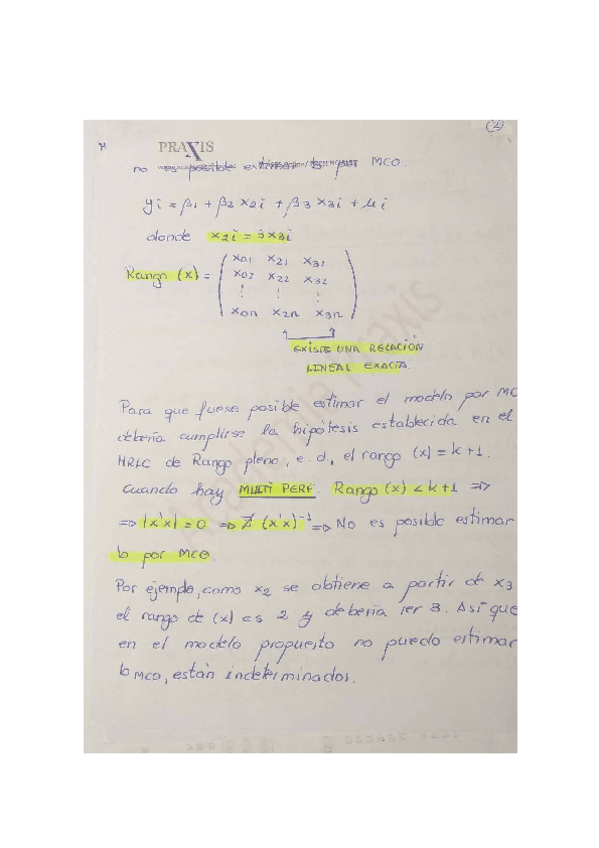 (2)
PRAXIS
no es posible estimar b por MCO.
yi = β1 + β2 x2i + β3 x3i + μi
donde x2i = 3x3i
Rango (x) =
x01 x21 x31
x02 x22 x32
⋮ ⋮ ⋮
x0n x2n x3n
EXISTE UNA RELACIÓN
LINEAL EXACTA.
Para que fuese posible estimar el modelo por MC
debería cumplirse la hipótesis establecida en el
MRLC de Rango pleno, e.d, el rango (x) = k+1.
Cuando hay MULTI PERF. Rango (x) < k+1 =>
=> |x'x| = 0 => ∄ (x'x)⁻¹ => No es posible estimar
b por MCO.
Por ejemplo, como x2 se obtiene a partir de x3
el rango de (x) es 2 y debería ser 3. Así que
en el modelo propuesto no puedo estimar
b MCO, están indeterminados.
Academia Praxis